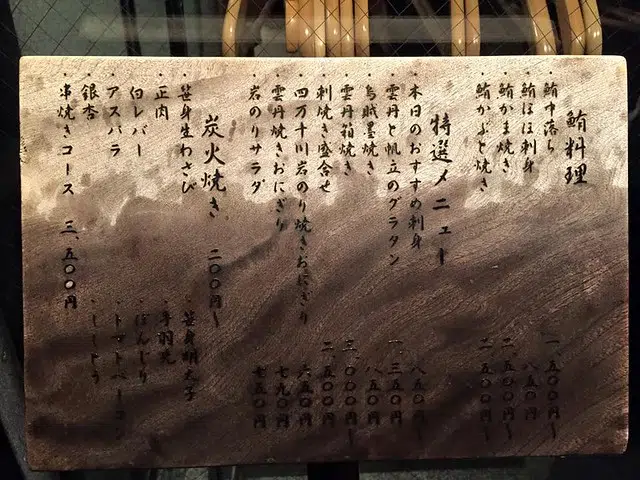 鮪料理
・鮪中落ち 一、五〇〇円〜
・鮪ほほ刺身 八五〇円
・鮪かま焼き 二、五〇〇円〜
・鮪かぶと焼き 二、五〇〇円〜
特選メニュー
・本日のおすすめ刺身 八五〇円〜
・雲丹と帆立のグラタン 一、三五〇円
・烏賊墨焼き 八五〇円
・雲丹箱焼き 三、〇〇〇円〜
・刺焼き盛合せ 二、五〇〇円
・四万十川岩のり焼きおにぎり 六五〇円
・雲丹焼きおにぎり 七九〇円
・岩のりサラダ 七五〇円
炭火焼き 二〇〇円〜
・笹身生わさび ・笹身明太子
・正肉 ・手羽先
・白レバー ・ぼんじり
・アスパラ ・トマトベーコン
・銀杏 ・ししとう
・串焼きコース 三、五〇〇円